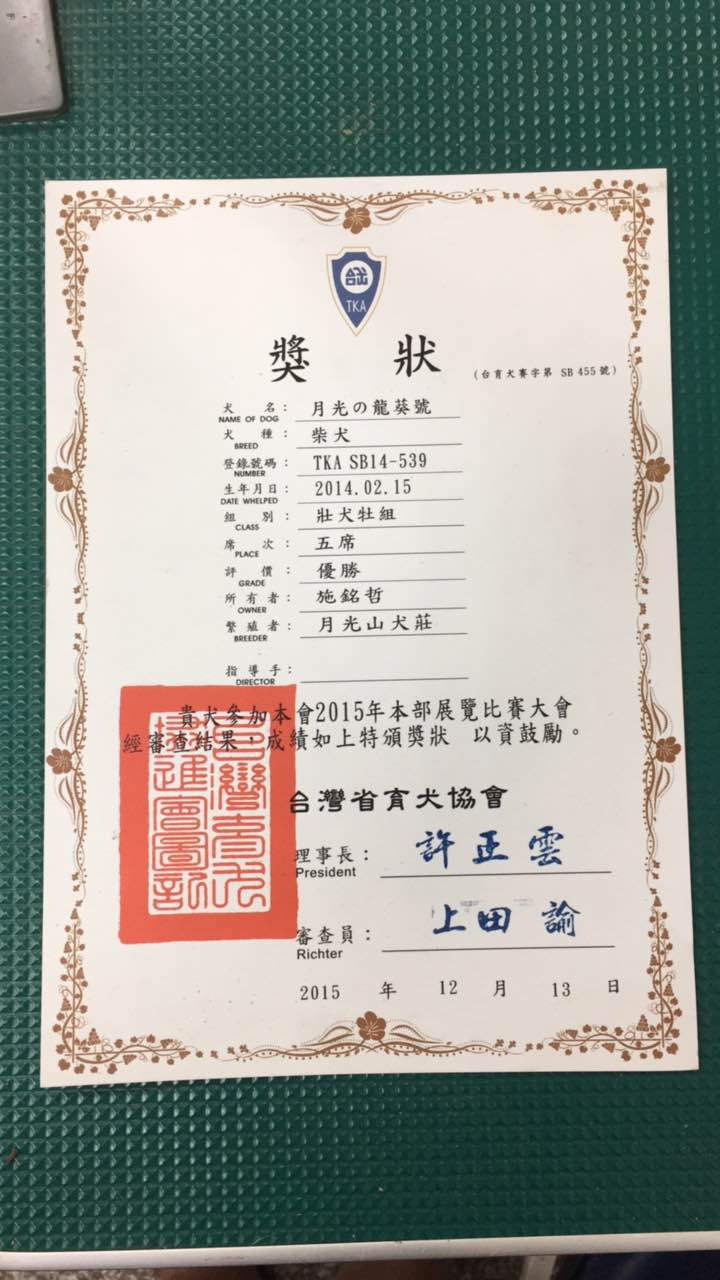 TKA
獎狀
(台育犬賽字第 SB 455 號)
犬名： 月光の龍葵號
NAME OF DOG
犬種： 柴犬
BREED
登錄號碼： TKA SB14-539
NUMBER
生年月日： 2014.02.15
DATE WHELPED
組別： 壯犬牡組
CLASS
席次： 五席
PLACE
評價： 優勝
GRADE
所有者： 施銘哲
OWNER
繁殖者： 月光山犬莊
BREEDER
指導手：
DIRECTOR
貴犬參加本會2015年本部展覽比賽大會
經審查結果，成績如上特頒獎狀 以資鼓勵。
台灣省育犬協會
理事長： 許正雲
President
審查員： 上田 諭
Richter
2015 年 12 月 13 日